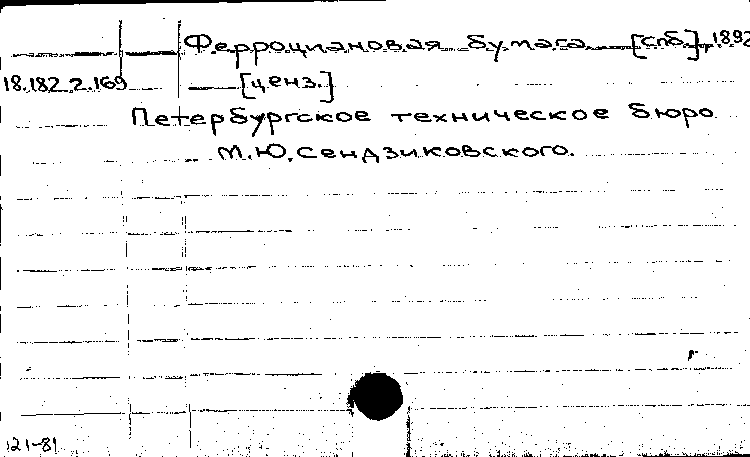 Ферроциановая бумага [спб], 1892
18.182.2.169 [ценз.]
Петербургское техническое бюро
М.Ю.Сендзиковского.
121-81